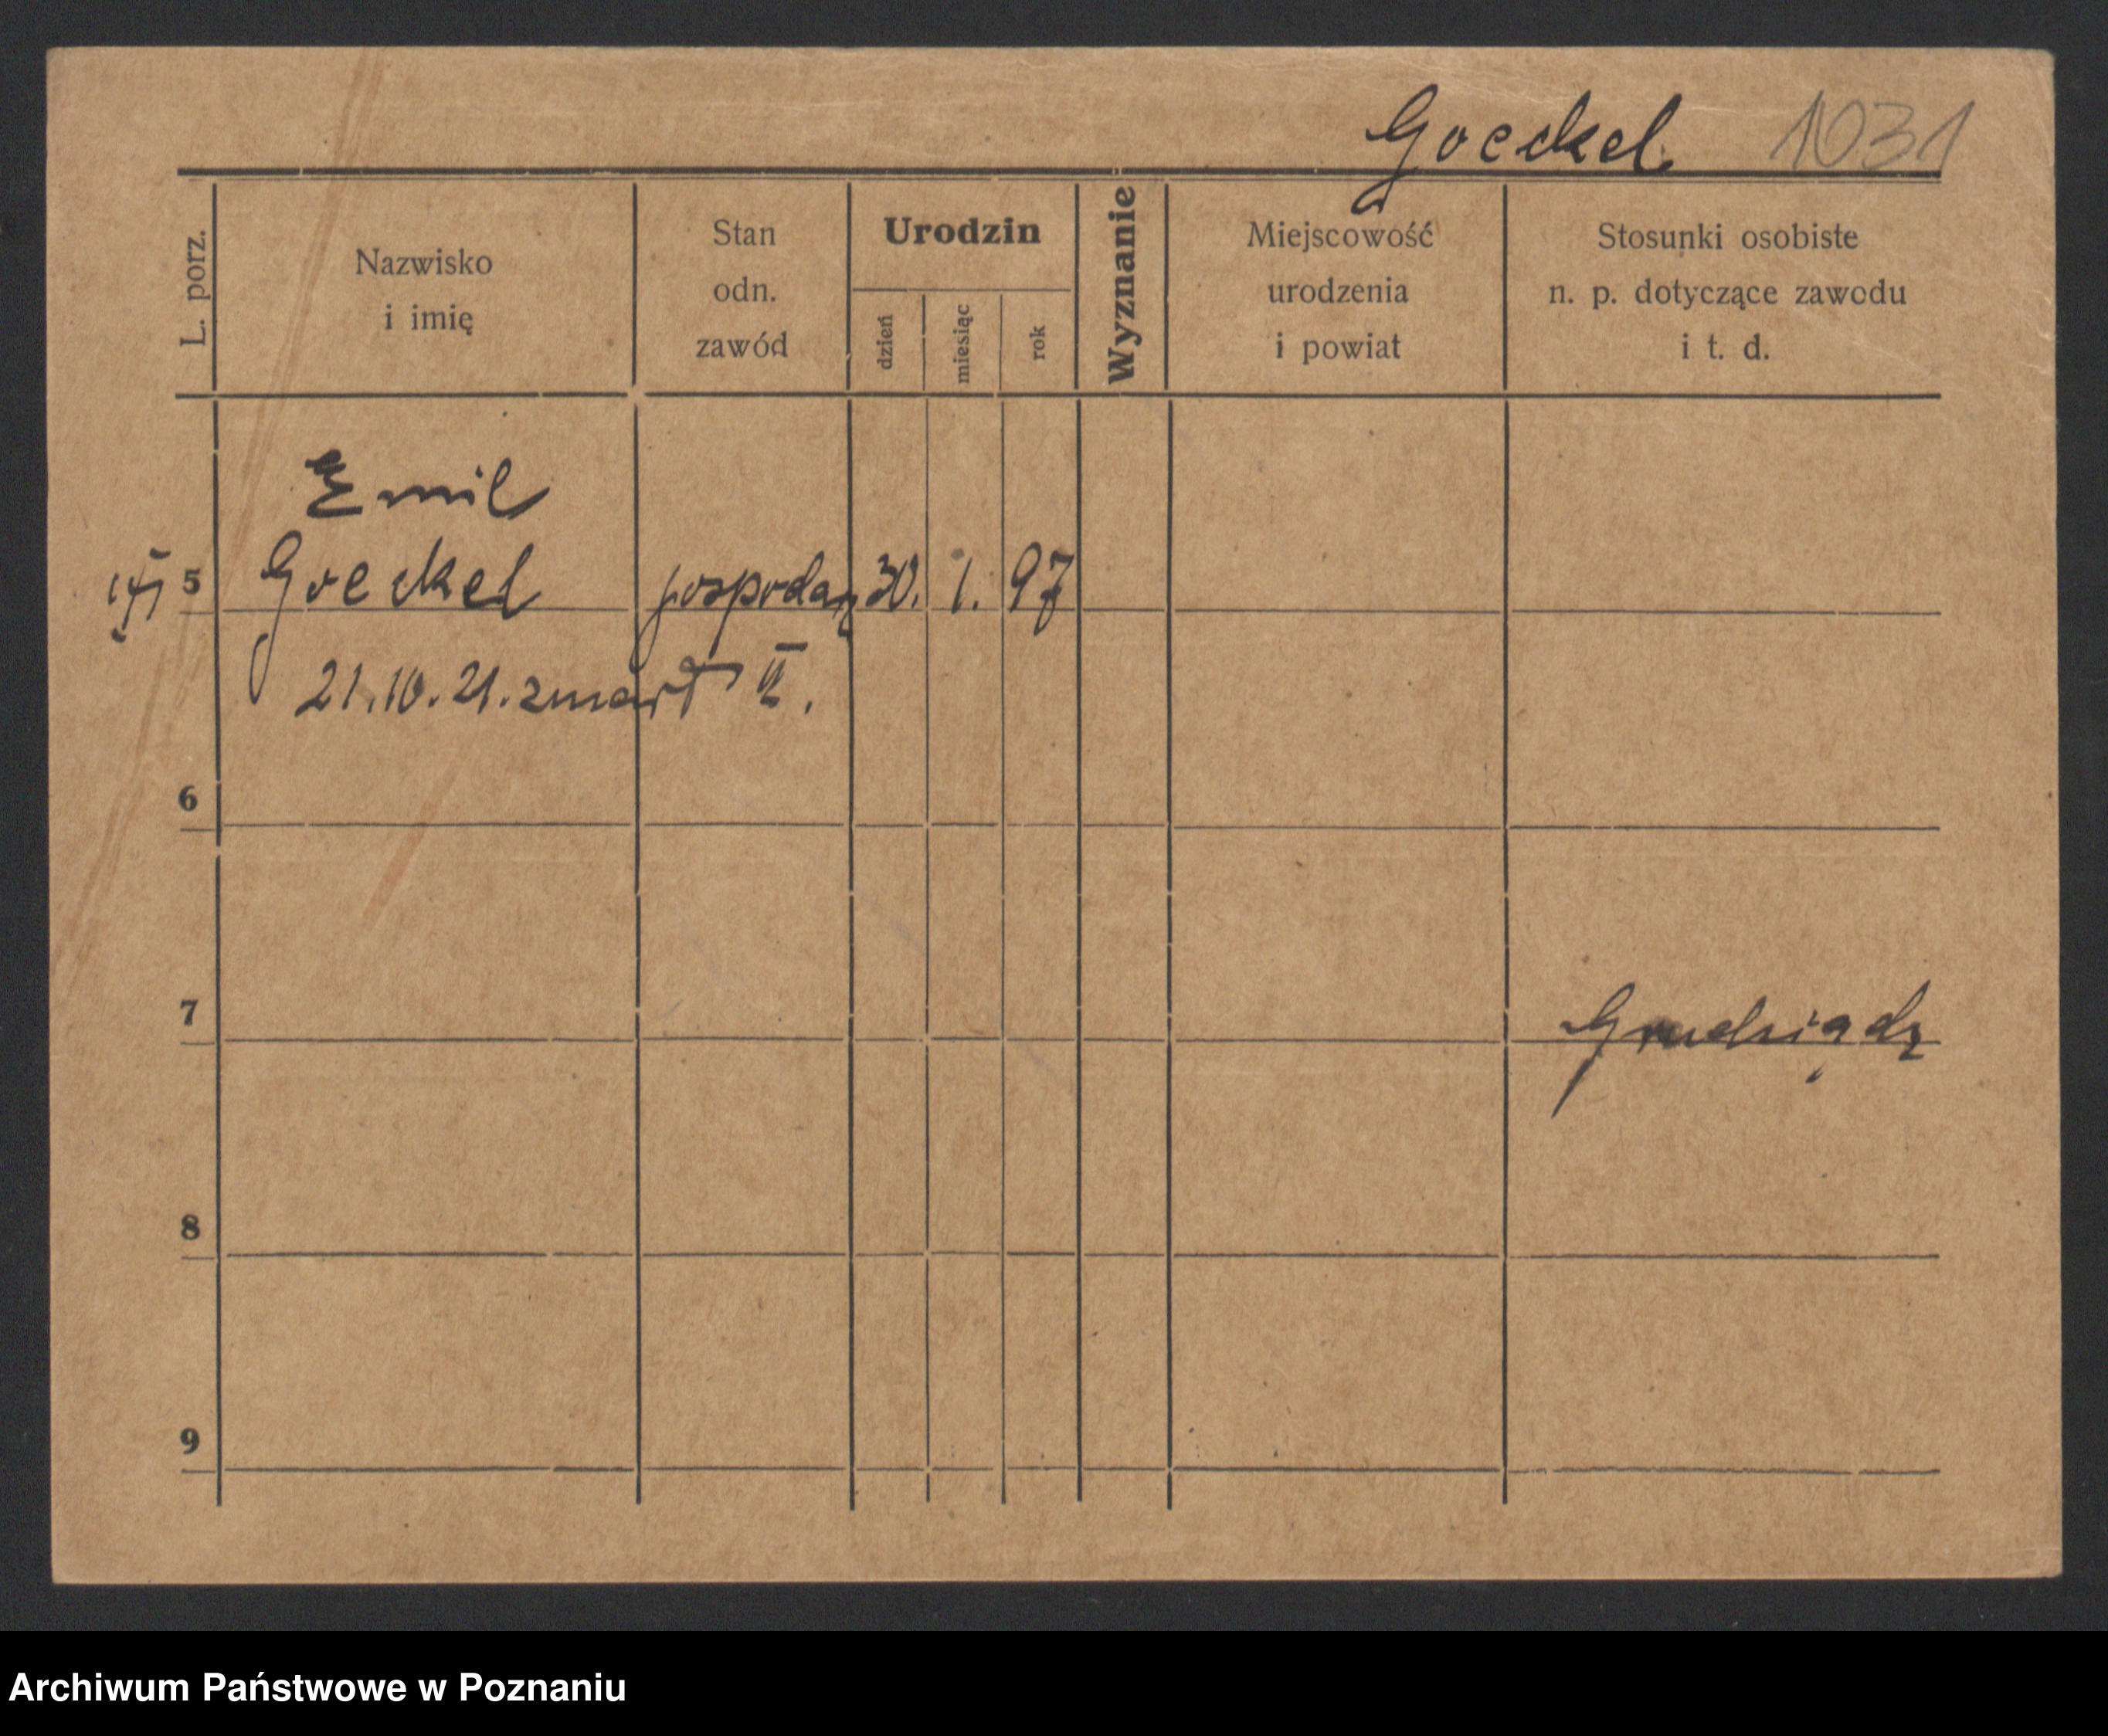 Goeckel 1031
L. porz.
Nazwisko
i imię
Stan
odn.
zawód
Urodzin
dzień
miesiąc
rok
Wyznanie
Miejscowość
urodzenia
i powiat
Stosunki osobiste
n. p. dotyczące zawodu
i t. d.
Emil
5 Goeckel gospodarz 30. 1. 97
21.10.21. zmarł
6
7 Grudziądz
8
9
Archiwum Państwowe w Poznaniu